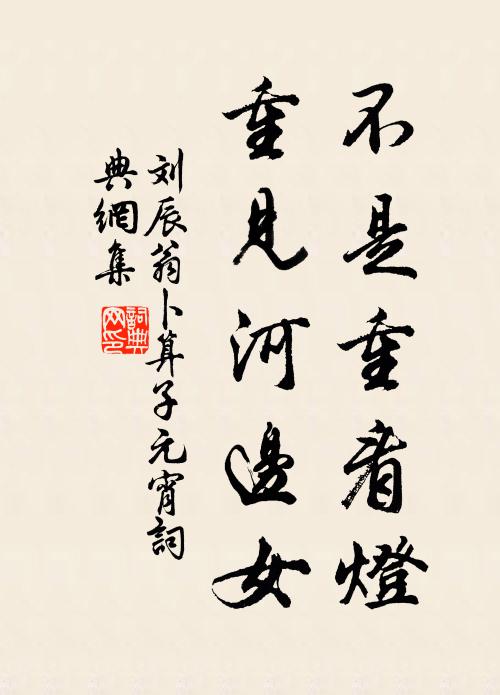 不是重看燈
重見河邊女
刘辰翁卜算子元宵詞
典網集
詞典网印